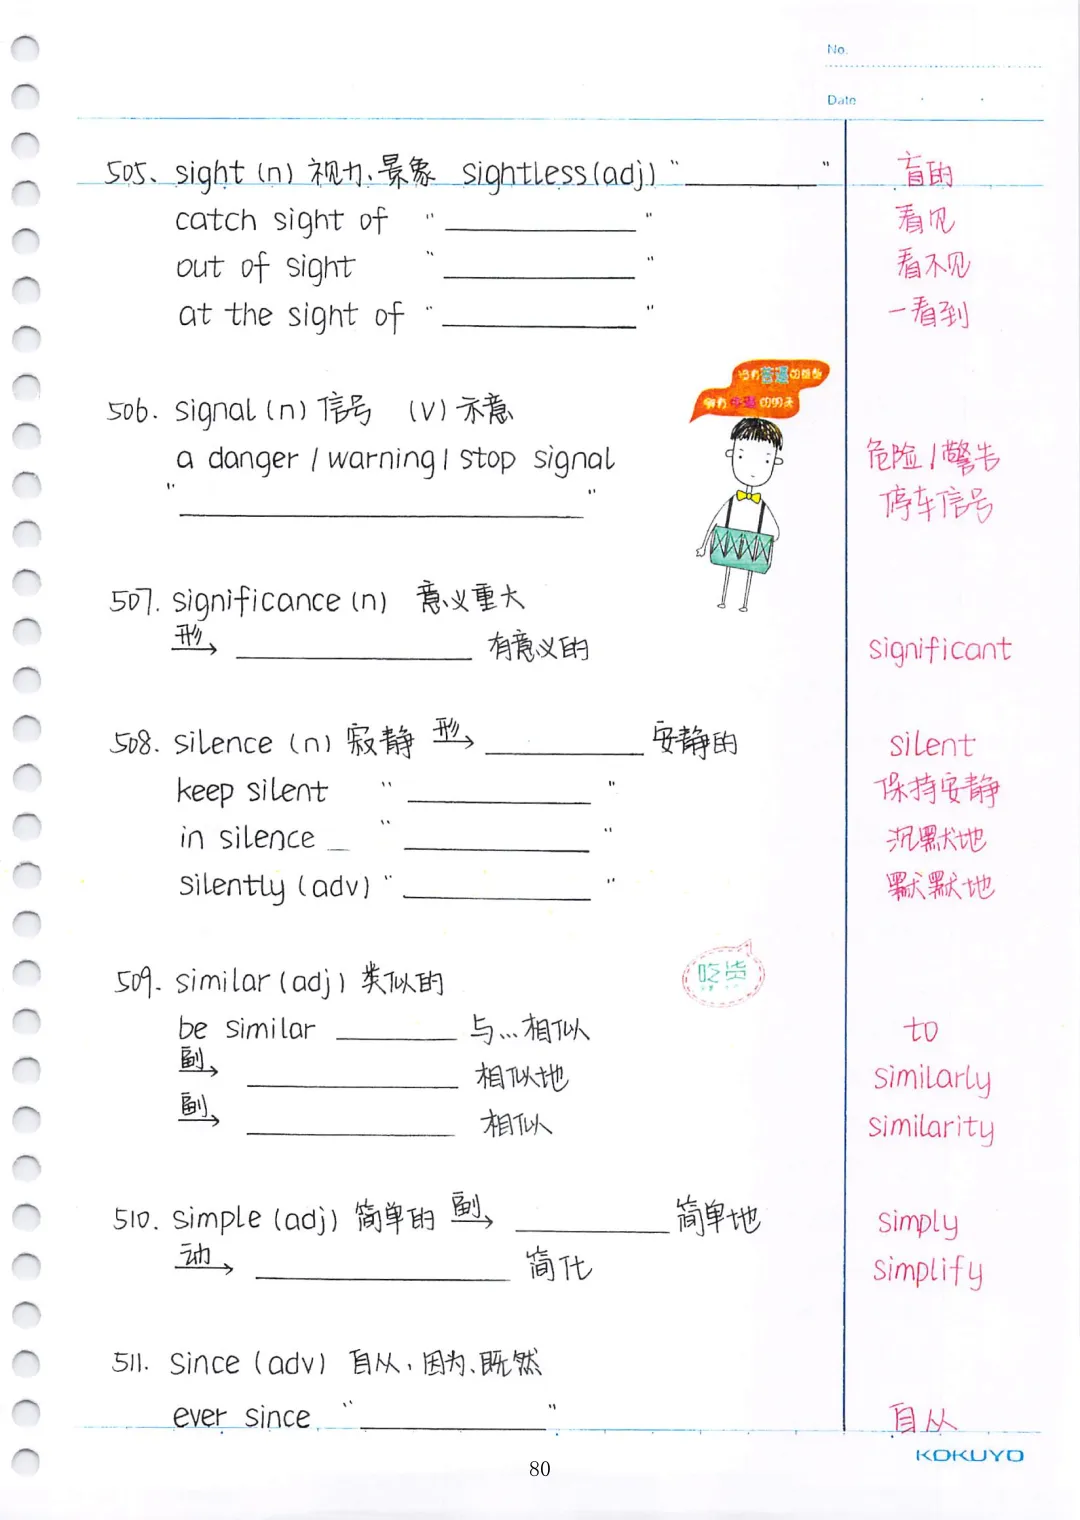 No.
Date
505、sight (n) 视力、景象 sightless(adj) “__________” 盲的
catch sight of “__________” 看见
out of sight “__________” 看不见
at the sight of “__________” 一看到
没有普通的
拥有 的明天
506、signal (n) 信号 (v) 示意
a danger / warning / stop signal 危险 / 警告
“__________” 停车信号
507. significance (n) 意义重大
形→ __________ 有意义的 significant
508. silence (n) 寂静 形→ __________ 安静的 silent
keep silent “__________” 保持安静
in silence _ “__________” 沉默地
silently (adv) “__________” 默默地
509. similar (adj) 类似的
吃货
be similar __________ 与...相似 to
副→ __________ 相似地 similarly
副→ __________ 相似 similarity
510. simple (adj) 简单的 副→ __________ 简单地 simply
动→ __________ 简化 simplify
511. since (adv) 自从、因为、既然
ever since “__________” 自从
KOKUYO
80